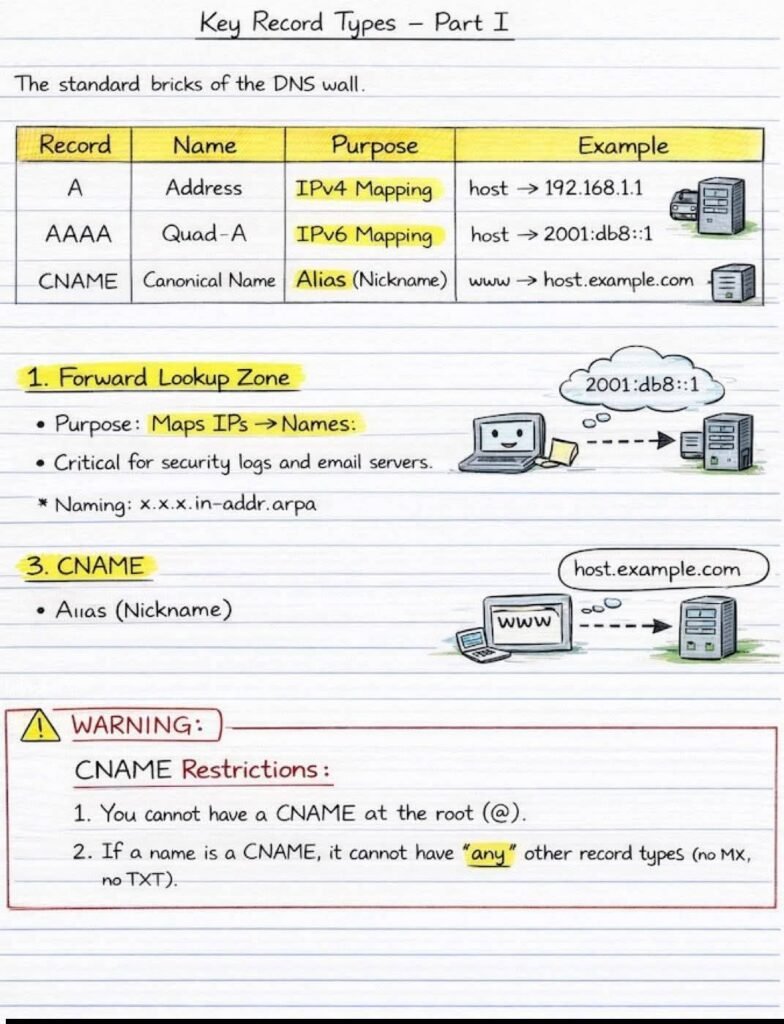 Key Record Types – Part I
The standard bricks of the DNS wall.
Record Name Purpose Example
A Address IPv4 Mapping host → 192.168.1.1
AAAA Quad-A IPv6 Mapping host → 2001:db8::1
CNAME Canonical Name Alias (Nickname) www → host.example.com
1. Forward Lookup Zone
2001:db8::1
• Purpose: Maps IPs → Names:
• Critical for security logs and email servers.
* Naming: x.x.x.in-addr.arpa
3. CNAME
host.example.com
• Alias (Nickname)
www
WARNING:
CNAME Restrictions:
1. You cannot have a CNAME at the root (@).
2. If a name is a CNAME, it cannot have "any" other record types (no MX,
no TXT).